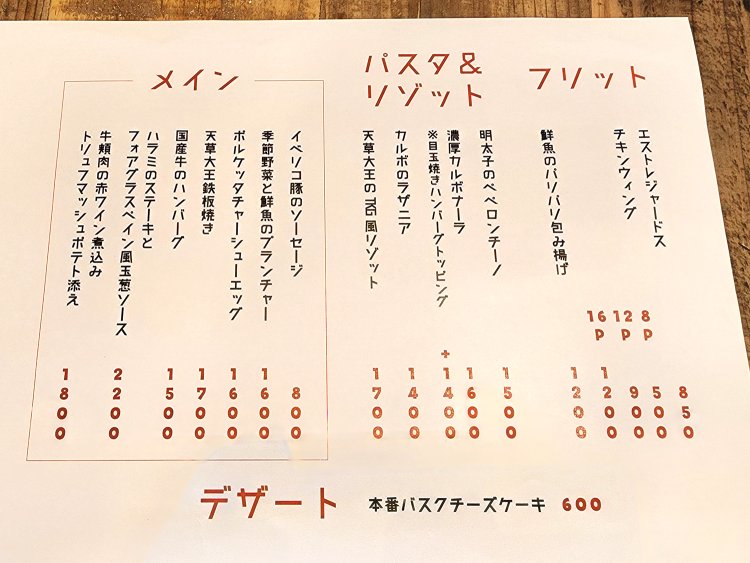 フリット
エストレジャードス 850
チキンウィング
8P 500
12P 900
16P 1200
鮮魚のパリパリ包み揚げ 1200
パスタ&
リゾット
明太子のペペロンチーノ 1500
濃厚カルボナーラ 1600
※目玉焼きハンバーグトッピング +1400
カルボのラザニア 1400
天草大王のTKG風リゾット 1700
メイン
イベリコ豚のソーセージ 800
季節野菜と鮮魚のブランチャー 1600
ポルケッタチャーシューエッグ 1600
天草大王鉄板焼き 1700
国産牛のハンバーグ 1500
ハラミのステーキと
フォアグラスペイン風玉葱ソース 2200
牛頬肉の赤ワイン煮込み
トリュフマッシュポテト添え 1800
デザート 本番バスクチーズケーキ 600